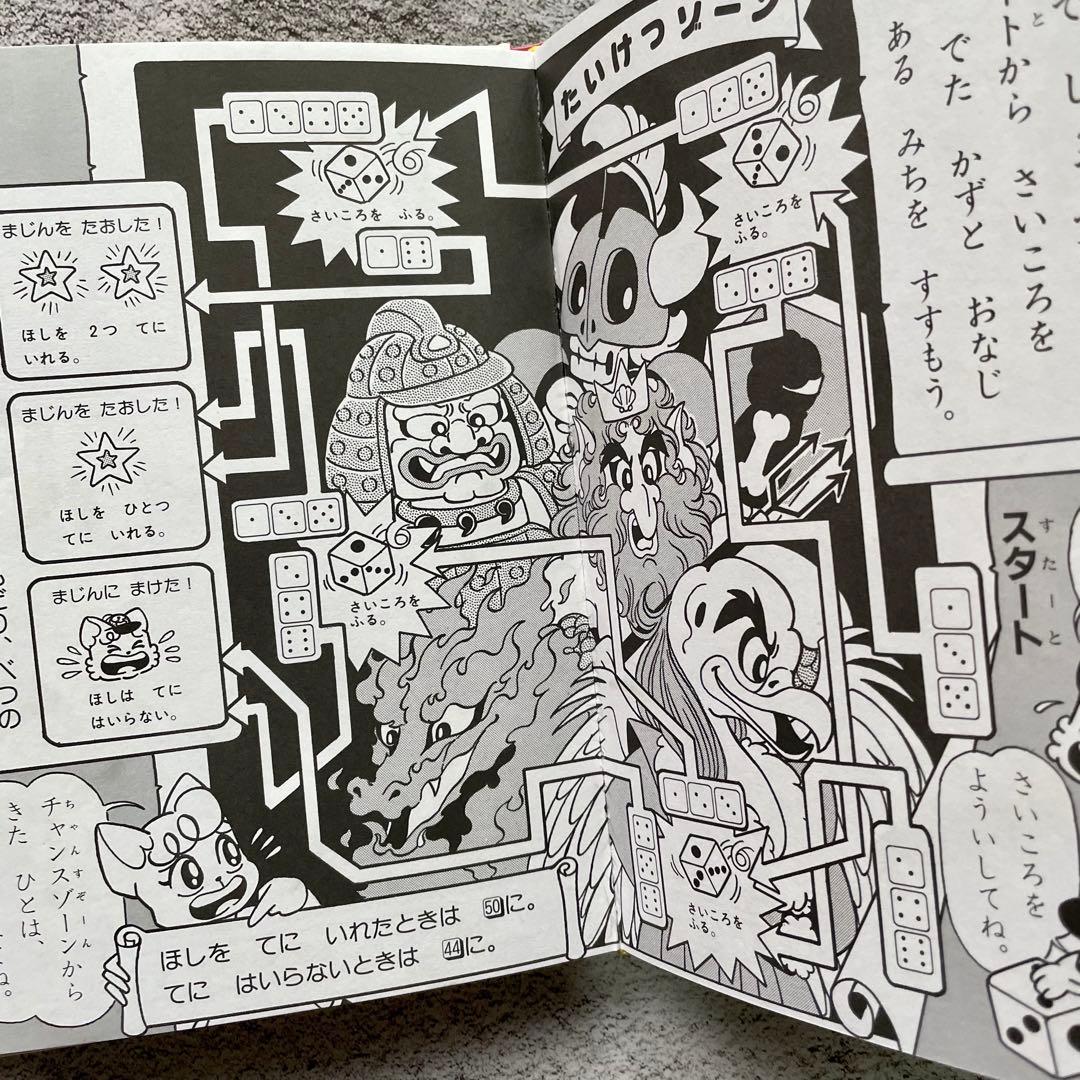 たいけつゾーン
トから さいころを
でた かずと おなじ
ある みちを すすもう。
スタート
すたーと
さいころを
ふる。
さいころを ふる。
さいころを
ふる。
さいころを
ふる。
まじんを たおした！
ほしを 2つ てに
いれる。
まじんを たおした！
ほしを ひとつ
てに いれる。
まじんに まけた！
ほしは てに
はいらない。
さいころを
よういしてね。
チャンスゾーンから
ちゃんすぞーん
きた ひとは、
ほしを てに いれたときは 50に。
てに はいらないときは 44に。